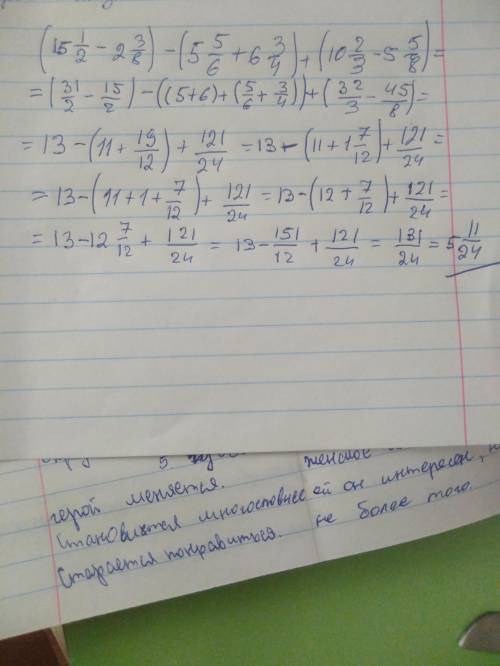 (15 1/2 − 2 3/8) − (5 5/6 + 6 3/4) + (10 2/3 − 5 5/8) =
= (31/2 − 15/2) − ((5+6) + (5/6 + 3/4)) + (32/3 − 45/8) =
= 13 − (11 + 19/12) + 121/24 = 13 − (11 + 1 7/12) + 121/24 =
= 13 − (11 + 1 + 7/12) + 121/24 = 13 − (12 + 7/12) + 121/24 =
= 13 − 12 7/12 + 121/24 = 13 − 151/12 + 121/24 = 131/24 = 5 11/24
5
женское
герой меняется.
Становится многословнее ей он интересен,
Старается понравиться. не более того.